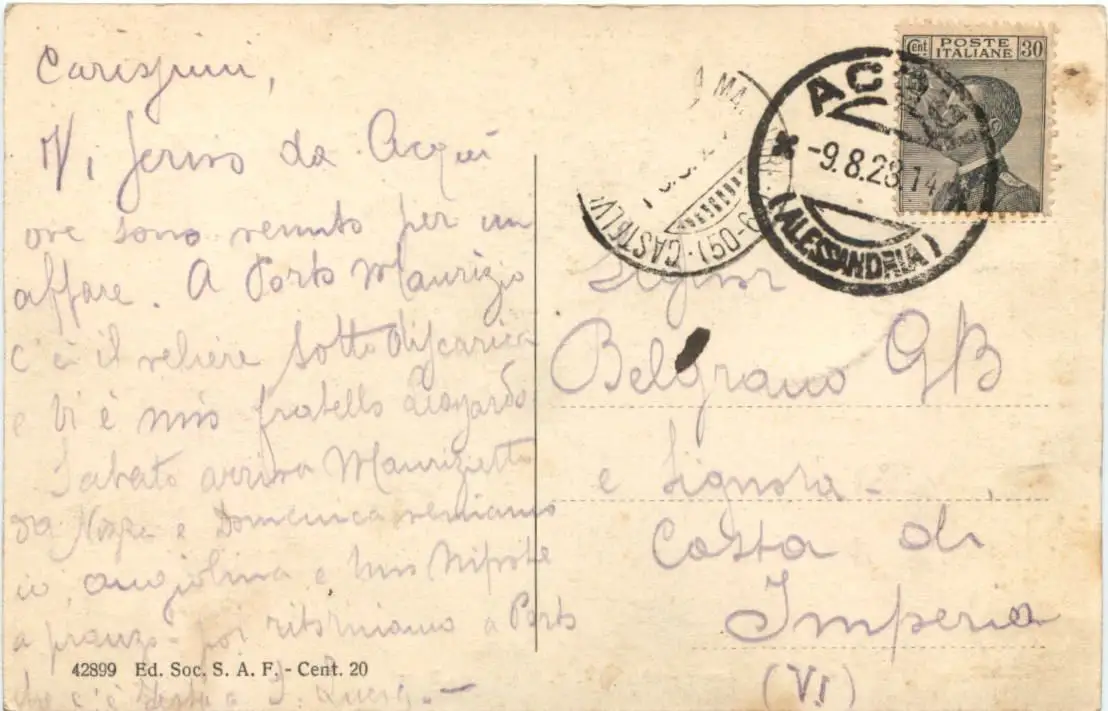 Carissimi,
Vi scrivo da Acqui
ove sono venuto per un
affare. A Porto Maurizio
c'è il veliere sotto discarica
e vi è mio fratello
Sabato arriva Maurizietto
da e Domenica veniamo
io, Angiolina e mio nipote
a pranzo - poi ritorniamo a Porto
che c'è festa a S.
42899 Ed. Soc. S. A. F. - Cent. 20
Cent POSTE ITALIANE 30
AC
-9.8.28.14
(ALESSANDRIA)
(50-6)
Signor
Belgrano GB
e Signora -
Costa di
Imperia
(VI)